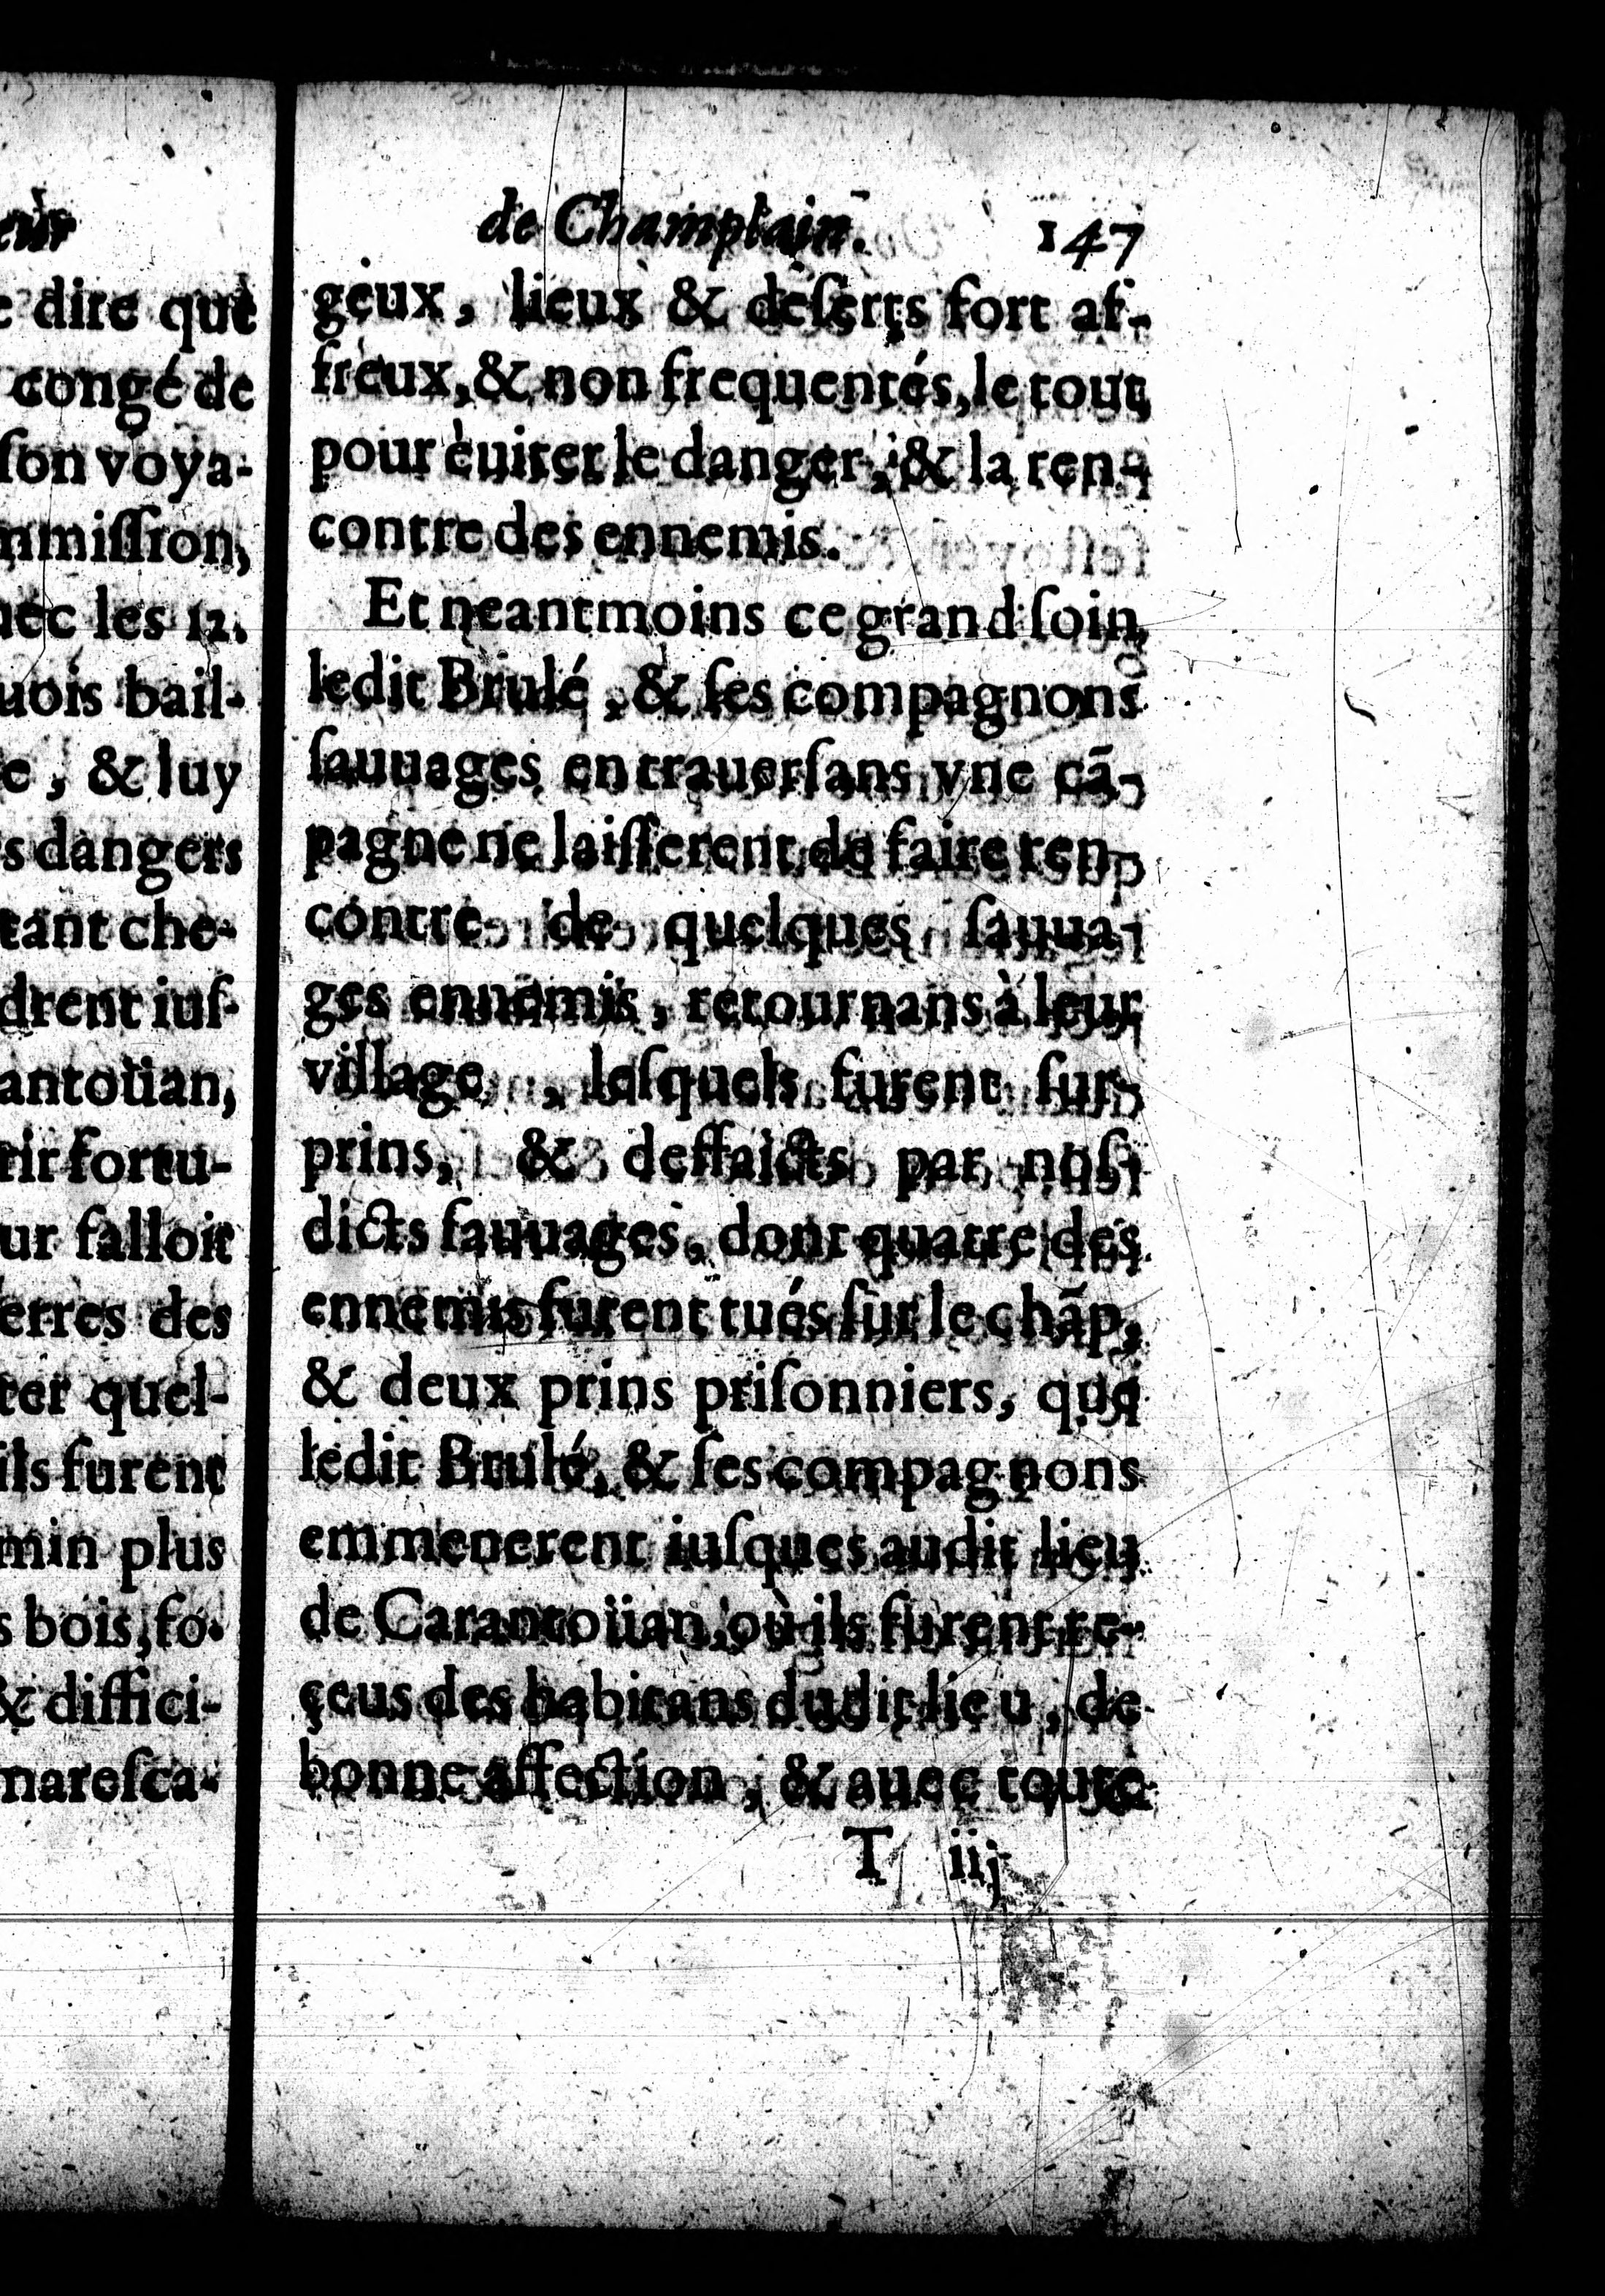 dire que
congé de
ſon voya-
mmiſſion,
uec les 12.
uois bail-
e, & luy
s dangers
tant che-
drent iuſ-
antoüan,
rir fortu-
ur falloit
erres des
ter quel-
ils furent
min plus
s bois, fo-
& diffici-
mareſca-
de Champlain. 147
geux, lieux & deſerts fort af-
freux, & non frequentés, le tout
pour éuiter le danger, & la ren-
contre des ennemis.
Et neantmoins ce grand ſoin,
ledit Brulé, & ſes compagnons
ſauuages en trauerſans vne cā-
pagne ne laiſſerent de faire ren-
contre de quelques ſauua-
ges ennemis, retournans à leur
village, leſquels furent ſur-
prins, & deffaicts par noſ-
dicts ſauuages, dont quatre des
ennemis furent tués ſur le chāp,
& deux prins priſonniers, que
ledit Brulé, & ſes compagnons
emmenerent iuſques audit lieu
de Carantoüan, où ils furent re-
çeus des habitans dudit lieu, de
bonne affection, & auec toute
T iij